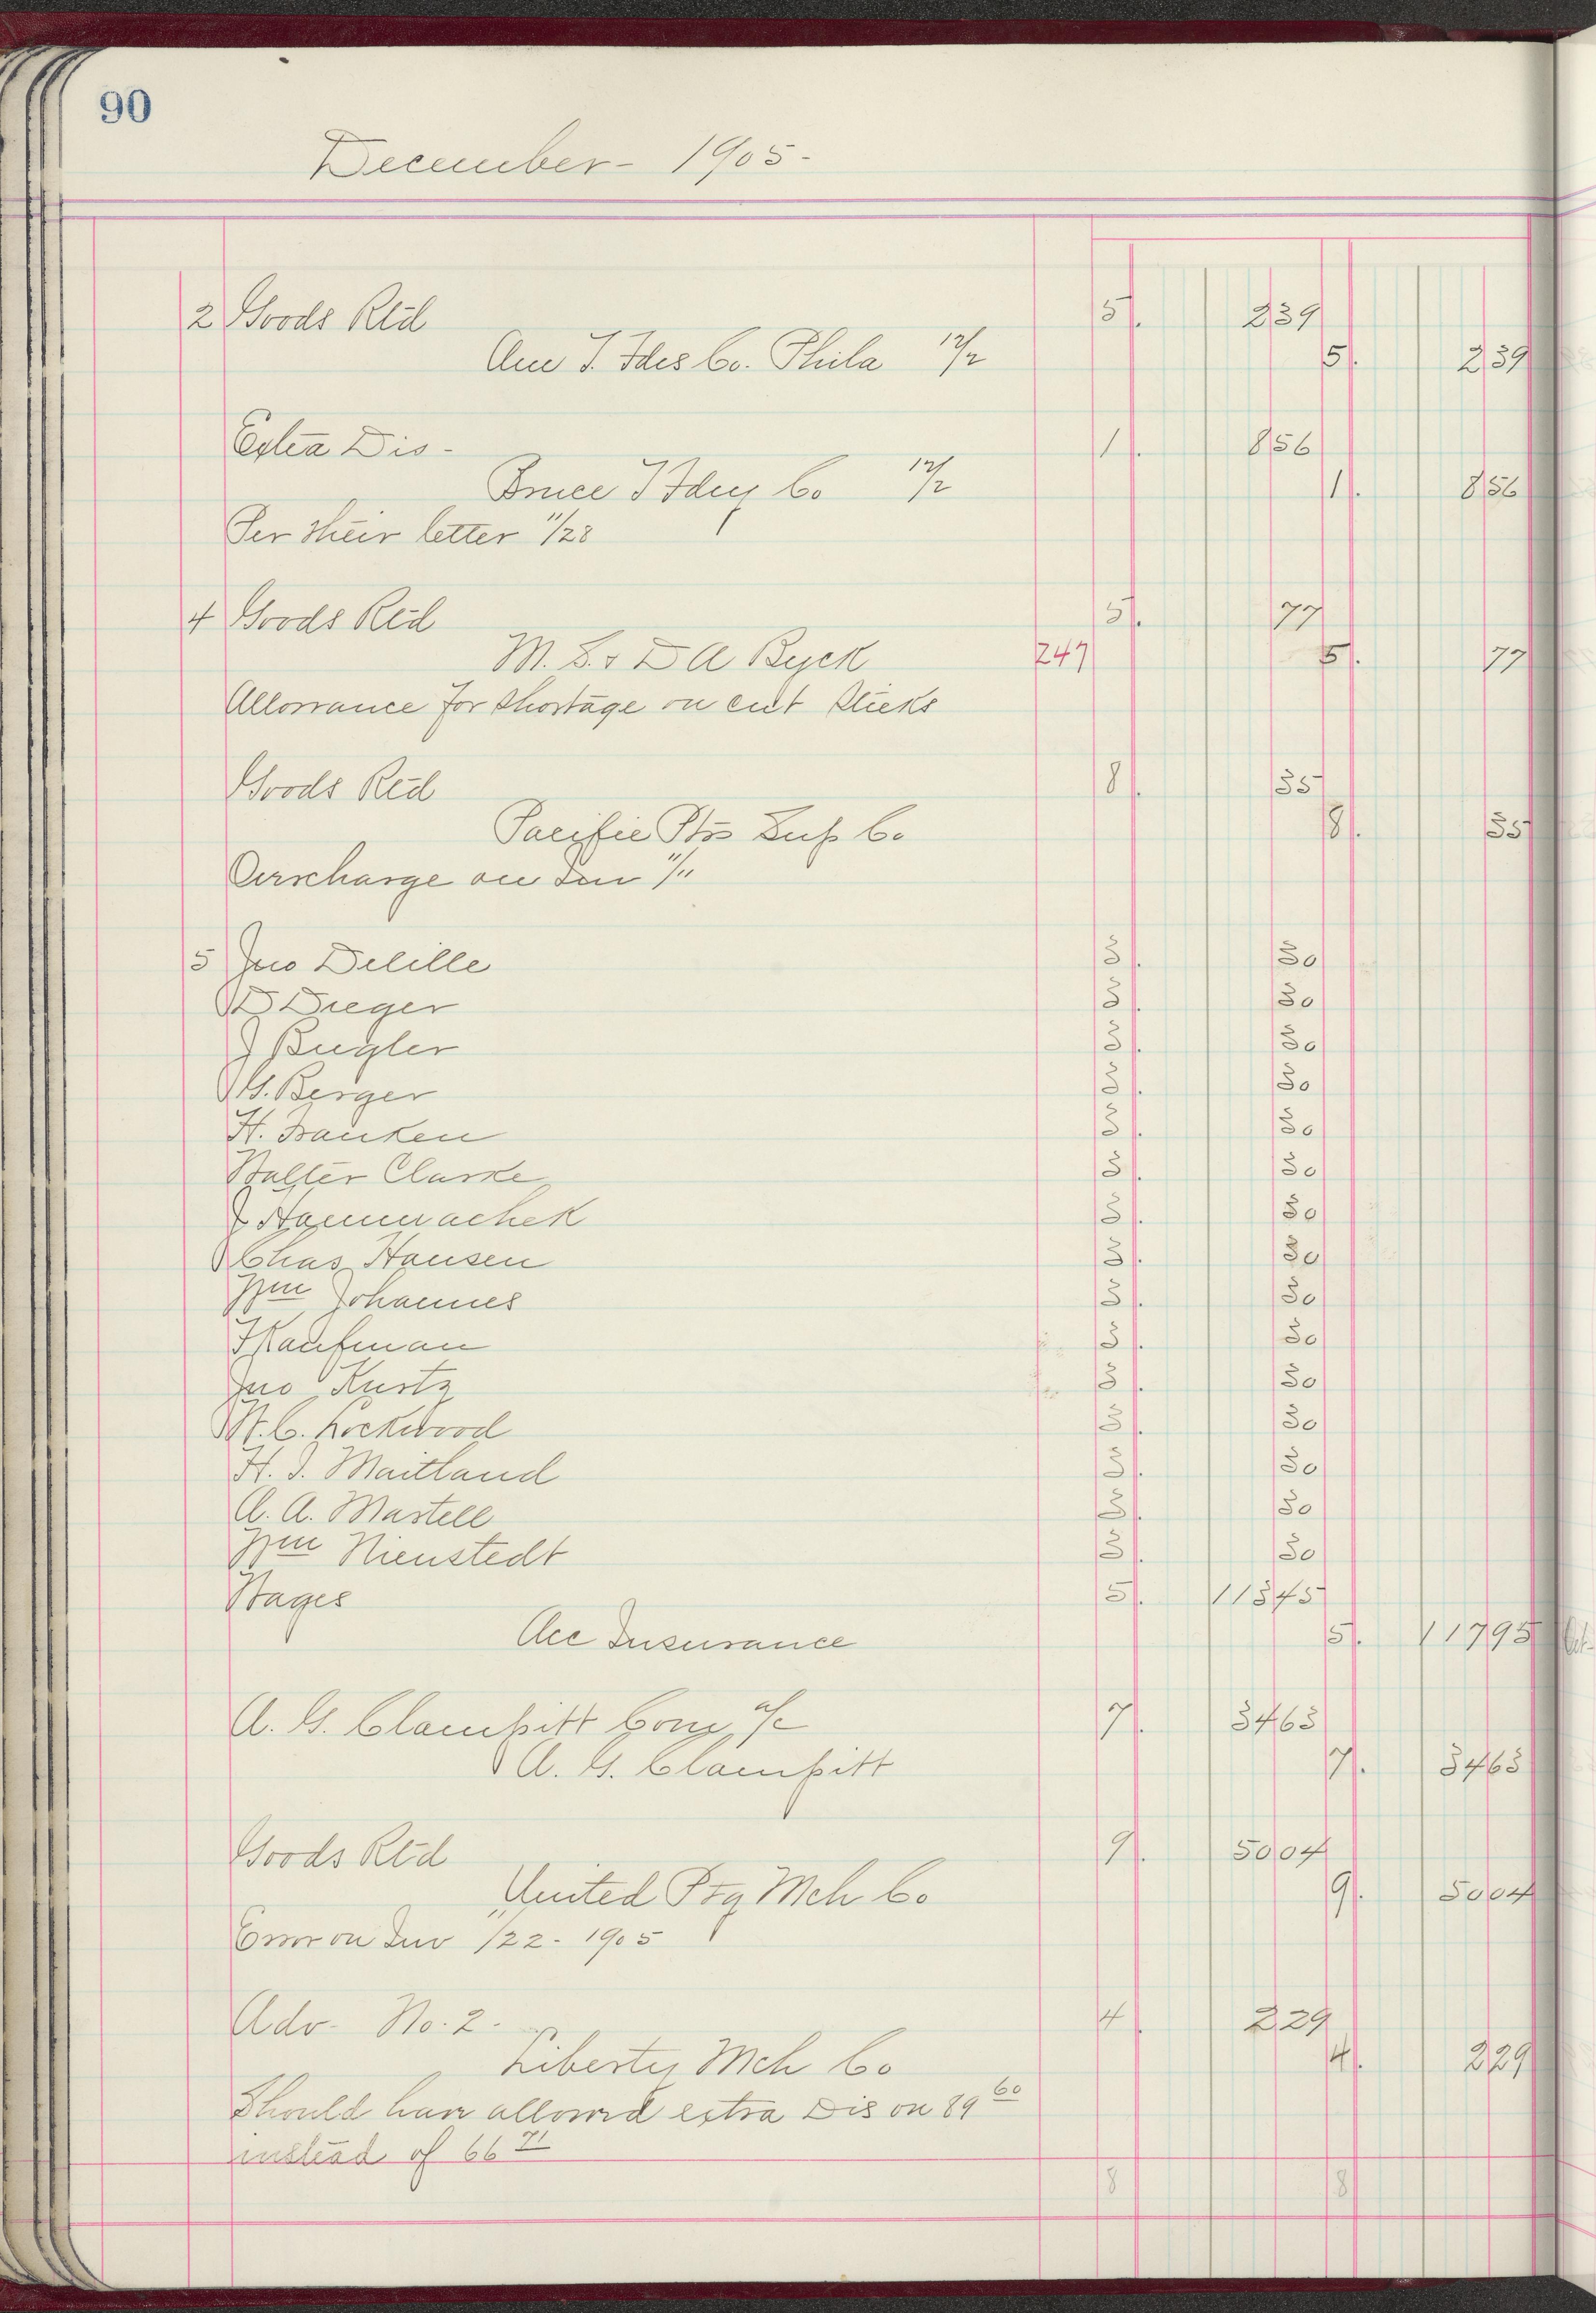 90
December - 1905 -
2 Goods Rtd 5. 239
Am T. Fdrs Co. Phila 12/2 5. 239
Extra Dis - 1. 856
Bruce T Fdry Co 12/2 1. 856
Per their letter 11/28
4 Goods Rtd 5. 77
M. S. & D A Byck 247 5. 77
Allowance for shortage on cut sticks
Goods Rtd 8. 35
Pacific Ptrs Sup Co 8. 35
Overcharge on Inv 11/11
5 Jno Delille 3. 30
D Dreger 3. 30
J Bugler 3. 30
G. Berger 3. 30
H. Franken 3. 30
Walter Clarke 3. 30
Hammachek 3. 30
Chas Hansen 3. 30
Wm Johannes 3. 30
Kaufman 3. 30
Jno Kurtz 3. 30
W. C. Lockwood 3. 30
H. J. Maitland 3. 30
A. A. Martell 3. 30
Wm Nienstedt 3. 30
Wages 5. 11345
Acc Insurance 5. 11795
A. G. Clampitt Com a/c 7. 3463
A. G. Clampitt 7. 3463
Goods Rtd 9. 5004
United Ptg Mch Co 9. 5004
Error on Inv 11/22 - 1905
Adv - No. 2 - 4. 229
Liberty Mch Co 4. 229
Should have allowed extra Dis on 89 60
instead of 66 71
8 8